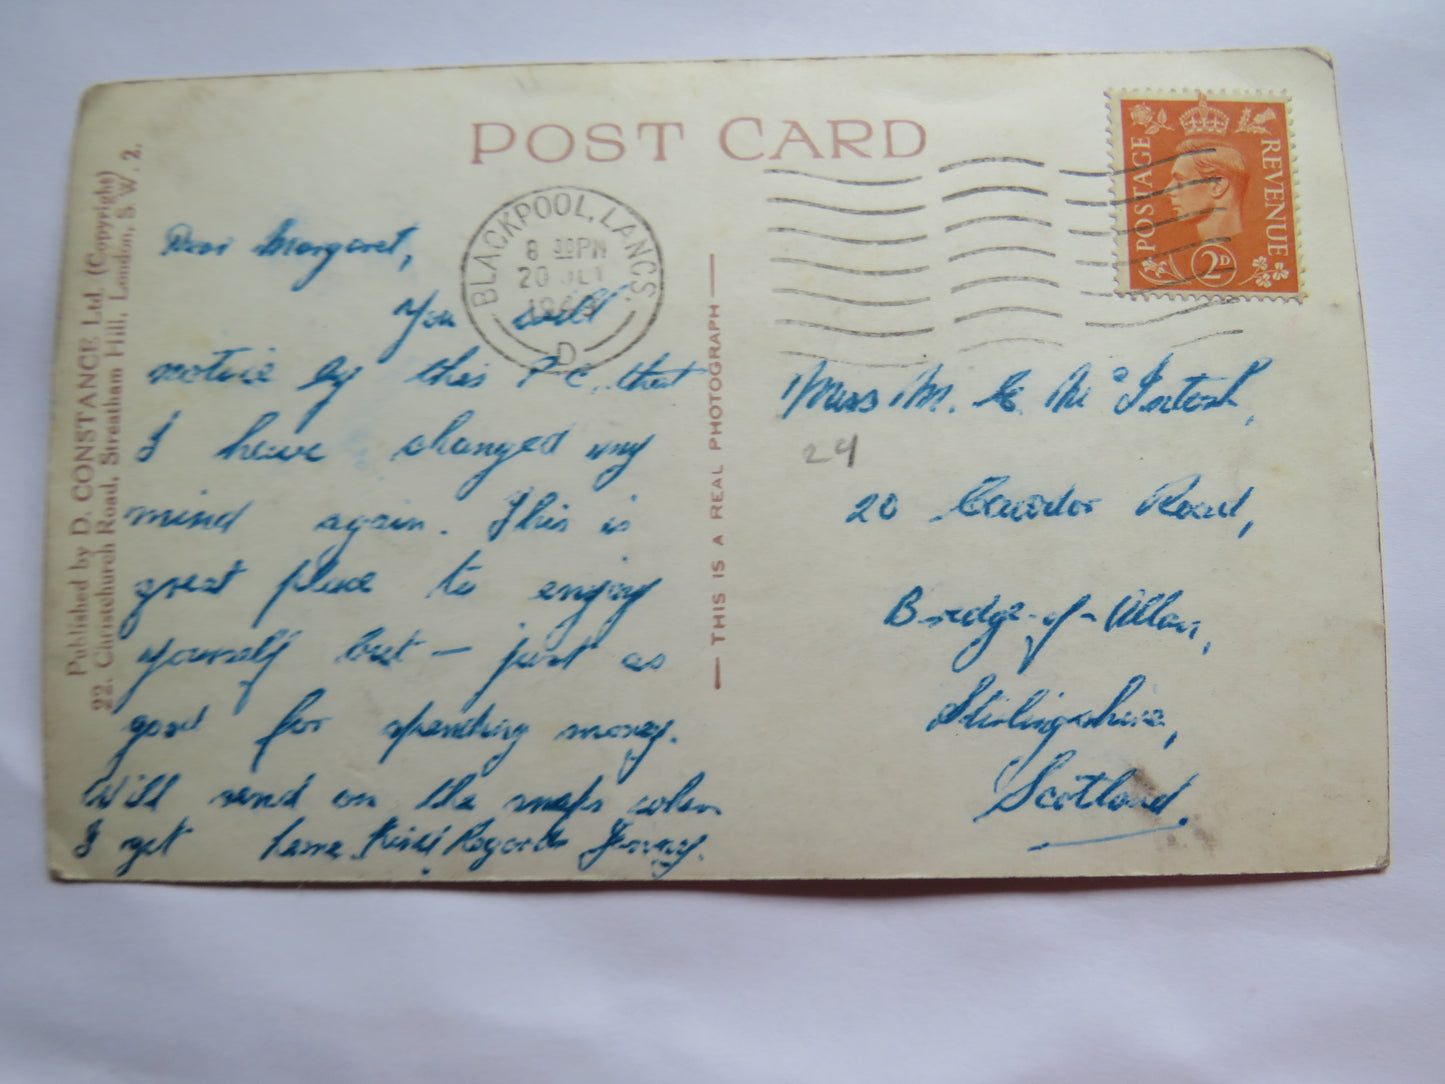 POST CARD
Published by D. CONSTANCE Ltd. (Copyright)
22, Christchurch Road, Streatham Hill, London, S.W.2.
BLACKPOOL, LANCS.
8 30 PM
20
D
POSTAGE REVENUE
2D
THIS IS A REAL PHOTOGRAPH
Dear Margaret,
You will
notice by this P.C. that
I have changed my
mind again. This is
great place to enjoy
yourself but – just as
good for spending money.
Will send on the snaps when
I get Kind Regards
Miss M. C. McIntosh,
24
20 Cawdor Road,
Bridge-of-Allan,
Stirlingshire,
Scotland.